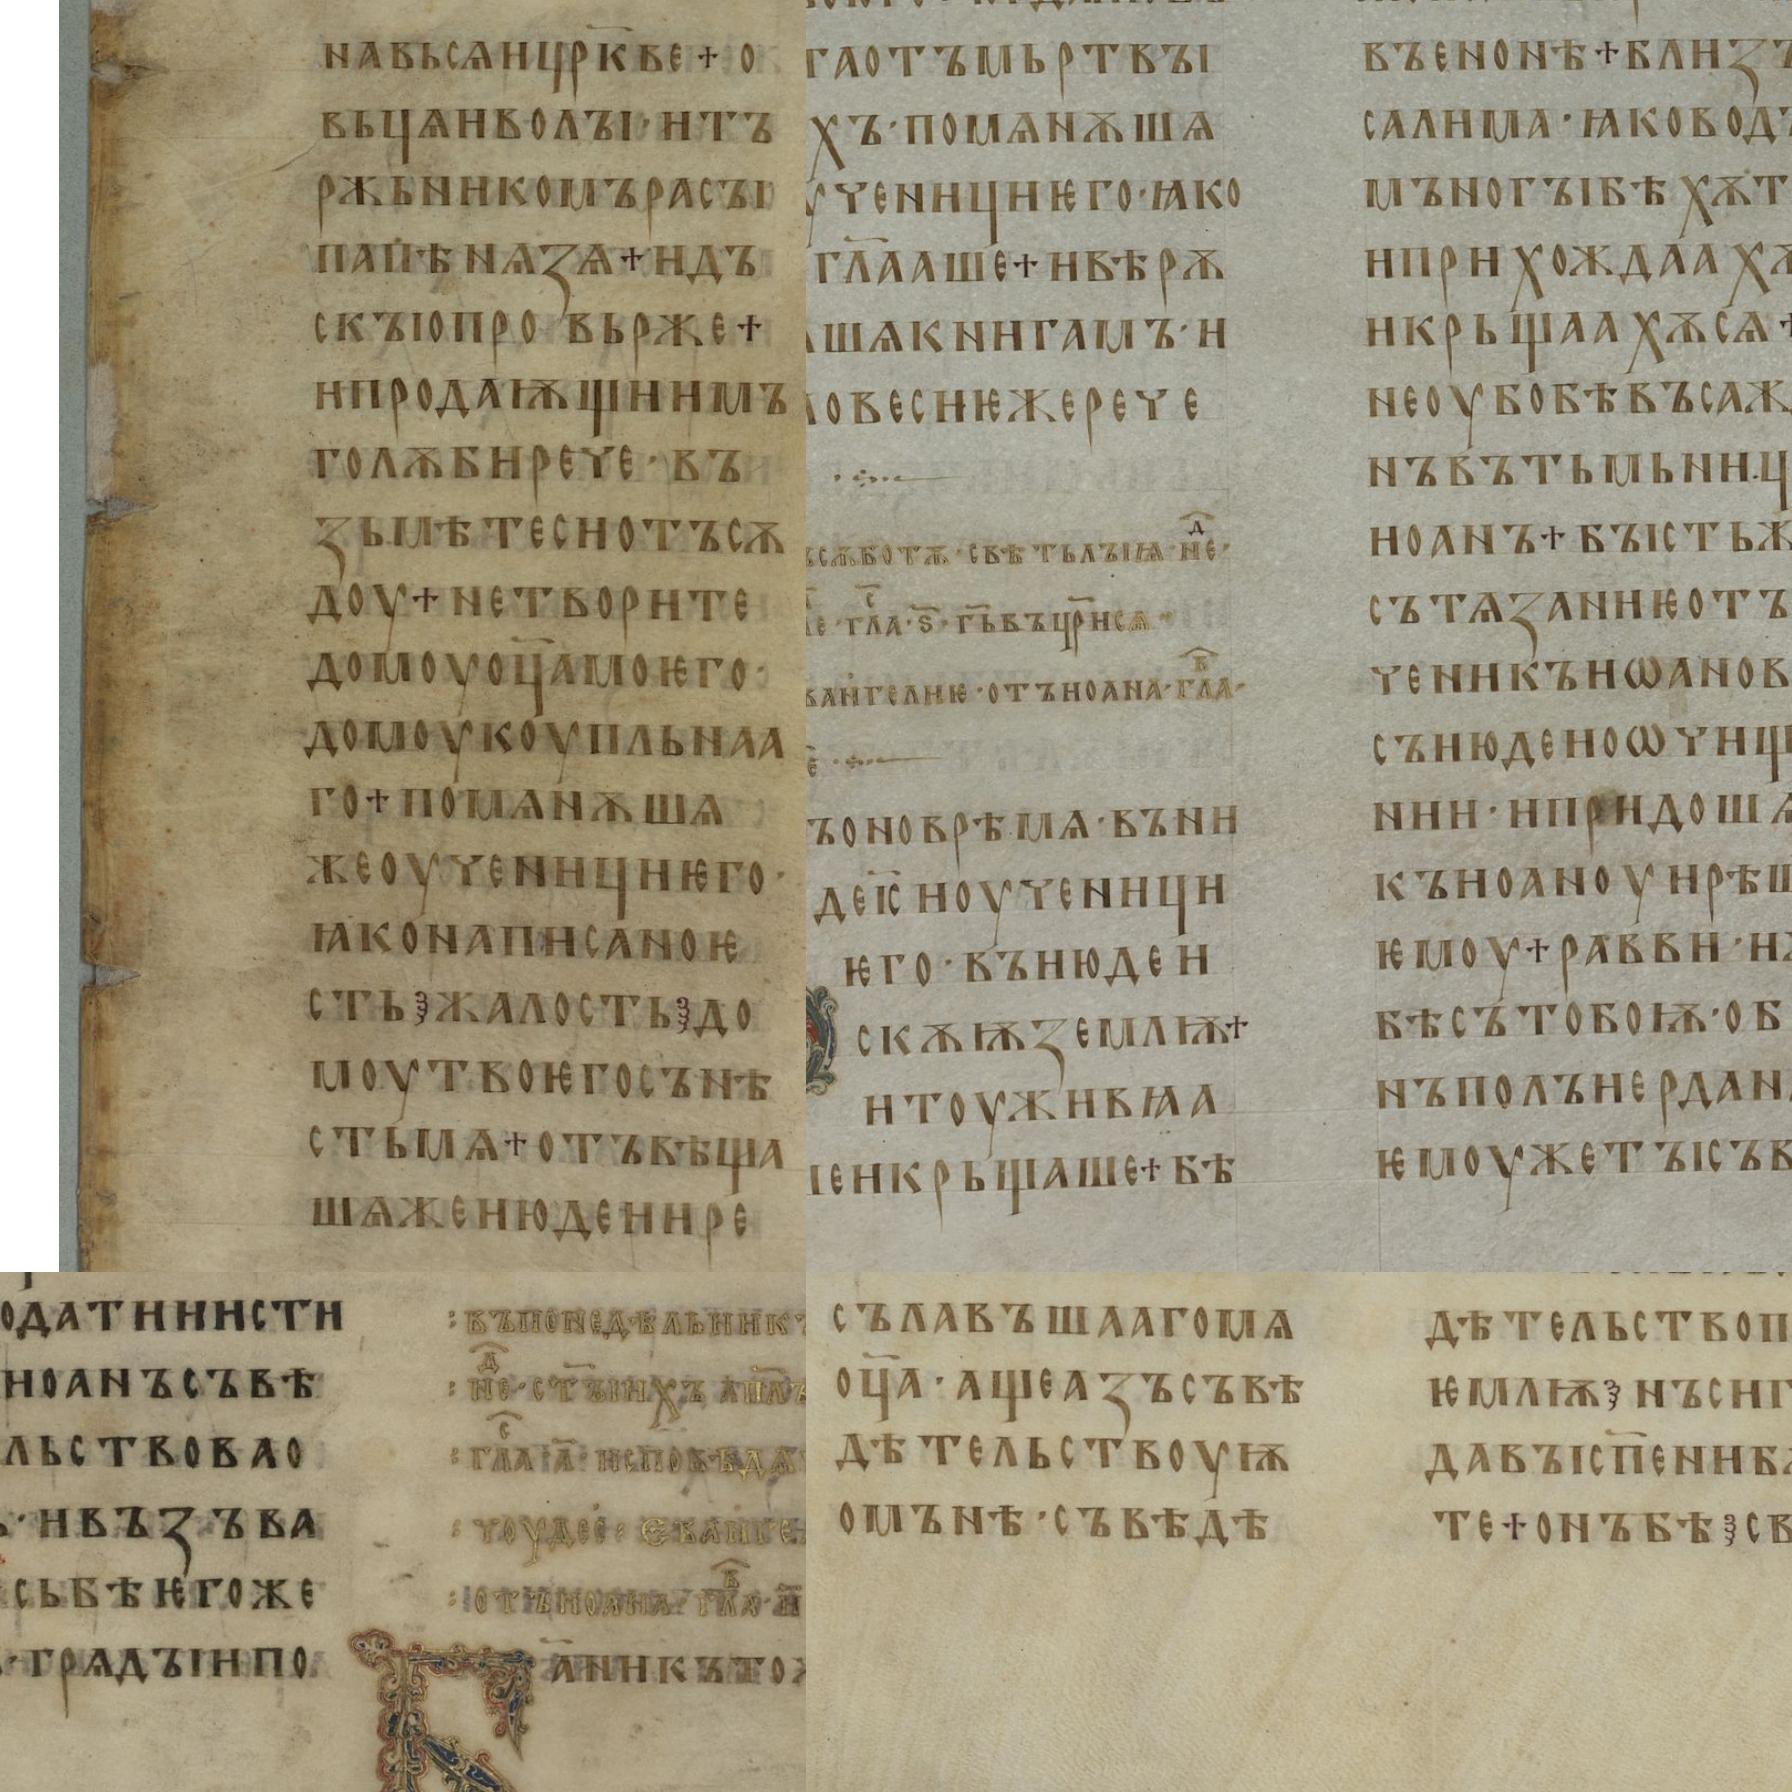 иꙁ
навьсѧицр҃кве+о
вьцѧиволꙑ·итъ
рѫьникомърасꙑ
папѣнѧꙁѧ+идъ
скꙑіопро вьрже+
ипродаѭщиимъ
голѫбирече·въ
ꙁьмѣтесиотъсѫ
доу+нетворите
домоуоц҃амоѥго·
домоукоупльнаа
го+помѧнѫшѧ
жеоученициѥго·
ꙗконаписаноѥ
сть жалость до
моутвоѥгосънѣ
стьмѧ+отъвѣща
шѧжеиюдеиире
гаотъмьртвꙑ
хъ·помѧнѫшѧ
ученициѥго·ꙗко
гл҃ааше+ивѣрѫ
шѧкнигамъ·и
ловесиѥжерече
ъсѫботѫ·свѣтьлꙑѩ·нед·
е·глас·ѕ҃·гь҃въцр҃исѧ
вангелиѥ·отъиоана·глав·
е
ъоноврѣмѧ·въни
деіс҃иоученици
ѥго·въиюдеи
скѫѭꙁемлѭ+
итоуживꙗа
ꙗеикрьщаше+бѣ
въенонѣ+близъ
салима·ꙗковод
мъногꙑбѣхѫт
иприхождаахѫ
икрьщаахѫсѧ+
неоубобѣвъсаж
нъвътьмьниц
иоанъ+бꙑстьж
сътѧꙁаниѥотъ
ченикъиѡанов
съиюдеиоѡчищ
нии·ипридошѧ
къиоаноуирѣш
ѥмоу+равви·иж
бѣстобоѭ·об
нъполъиердан
ѥмоужетꙑсъв
одатииисти
иоанъсъвѣ
льствовао
·ивъꙁъва
сьбѣѥгоже
·грѧдꙑипо
:въпонедѣльник
:нед·ст҃ꙑихъ ап҃лъ
:глас а҃·исповѣдѧ
:чоудес: еванге
:отъиоана·глав·и
аникътож
сълавъшаагомѧ
оц҃а·ащеаꙁъсъвѣ
дѣтельствоуѭ
омънѣ·съвѣдѣ
дѣтельствоп
ѥмлѭ нъсиг
давꙑсп҃ениб
те+онъбѣ св